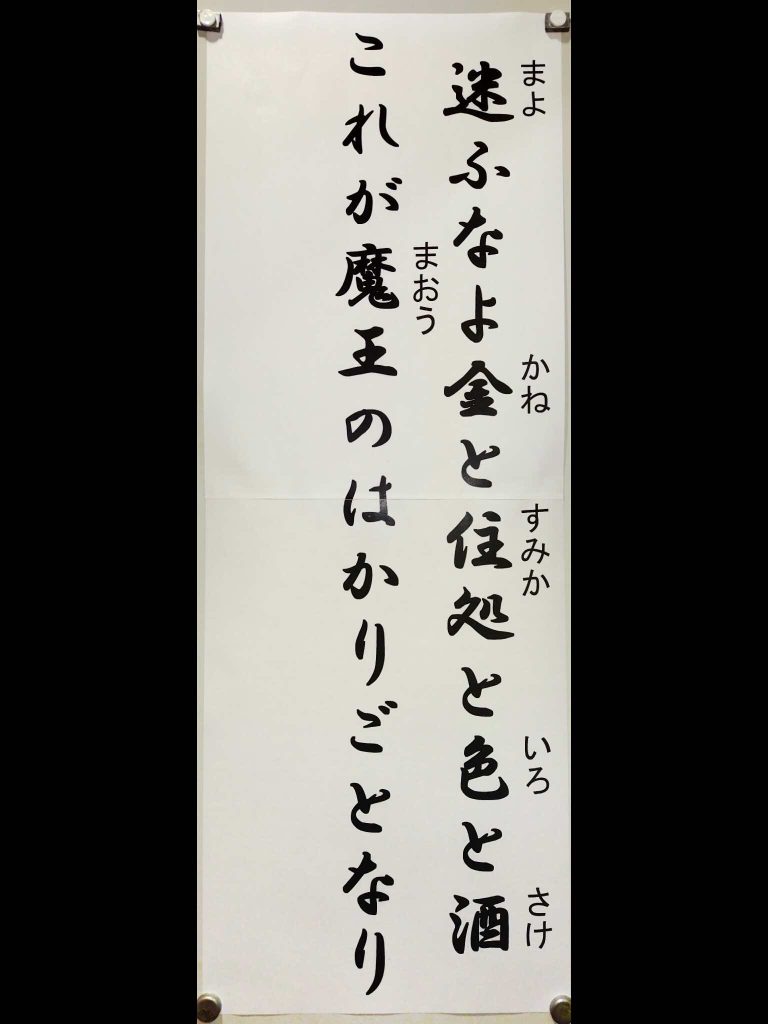 迷ふなよ金と住処と色と酒
まよ かね すみか いろ さけ
これが魔王のはかりごとなり
まおう